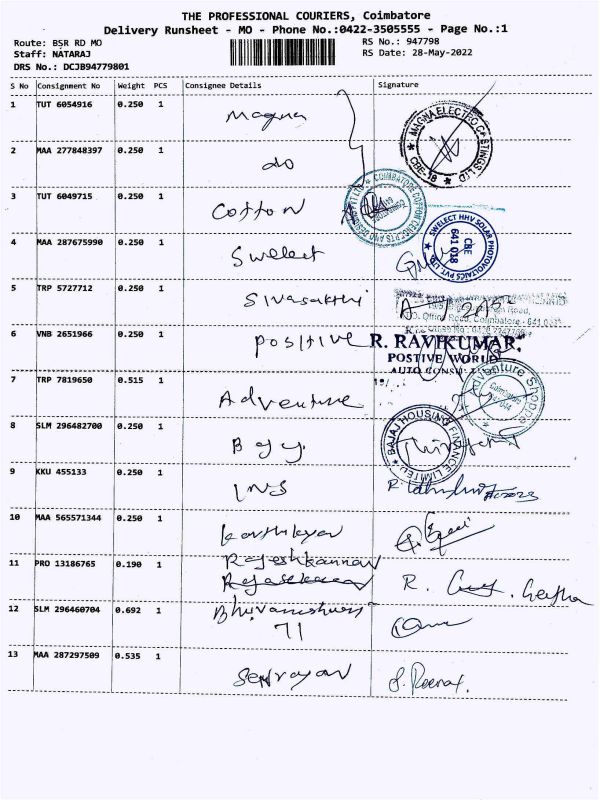 THE PROFESSIONAL COURIERS, Coimbatore
Delivery Runsheet - MO - Phone No.:0422-3505555 - Page No.:1
Route: BSR RD MO RS No.: 947798
Staff: NATARAJ RS Date: 28-May-2022
DRS No.: DCJB94779801
S No Consignment No Weight PCS Consignee Details Signature
1 TUT 6054916 0.250 1 Magna
MAGNA ELECTRO CASTINGS LTD
CBE-18
2 MAA 277848397 0.250 1 do
3 TUT 6049715 0.250 1 Cotton
COIMBATORE COTTON CONCEPTS AND DESIGNS PVT LTD
4 MAA 287675990 0.250 1 Swelect
SWELECT HHV SOLAR PHOTOVOLTAICS PVT. LTD.
CBE
641 018
5 TRP 5727712 0.250 1 Sivasakthi
Office Road, Coimbatore - 641 018
6 VNB 2651966 0.250 1 positive
R. RAVIKUMAR
POSTIVE WORLD
AUTO
7 TRP 7819650 0.515 1 Adventure
Adventure Shoppe
Coimbatore
8 SLM 296482700 0.250 1
BAJAJ HOUSING FINANCE LIMITED
9 KKU 455133 0.250 1 INS
10 MAA 565571344 0.250 1 Karthikeyan
11 PRO 13186765 0.190 1 Rajeshkannan
R. Geetha
12 SLM 296460704 0.692 1 Bhuvaneshwari
71
13 MAA 287297509 0.535 1